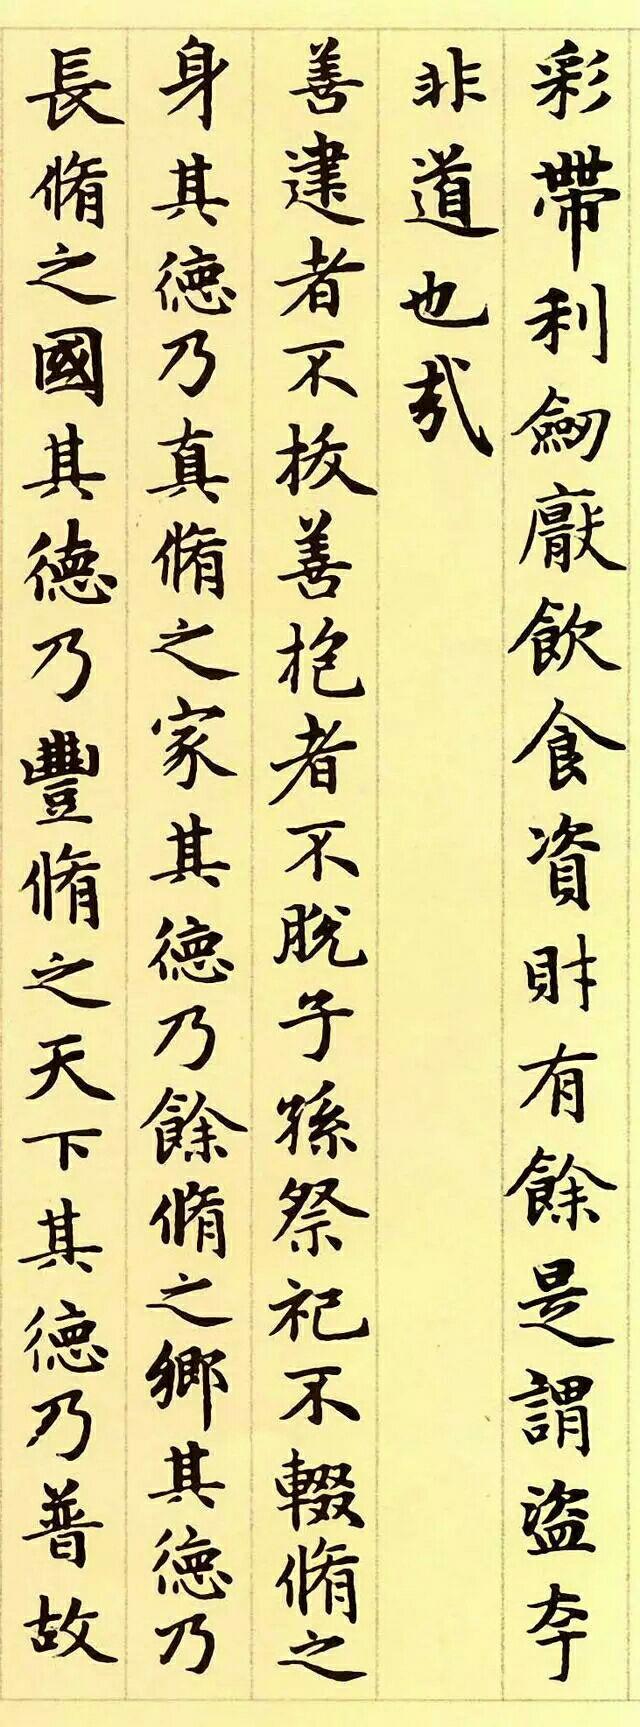 彩帶利劒厭飲食資財有餘是謂盜夸
非道也哉
善建者不拔善抱者不脫子孫祭祀不輟脩之
身其德乃真脩之家其德乃餘脩之鄉其德乃
長脩之國其德乃豐脩之天下其德乃普故